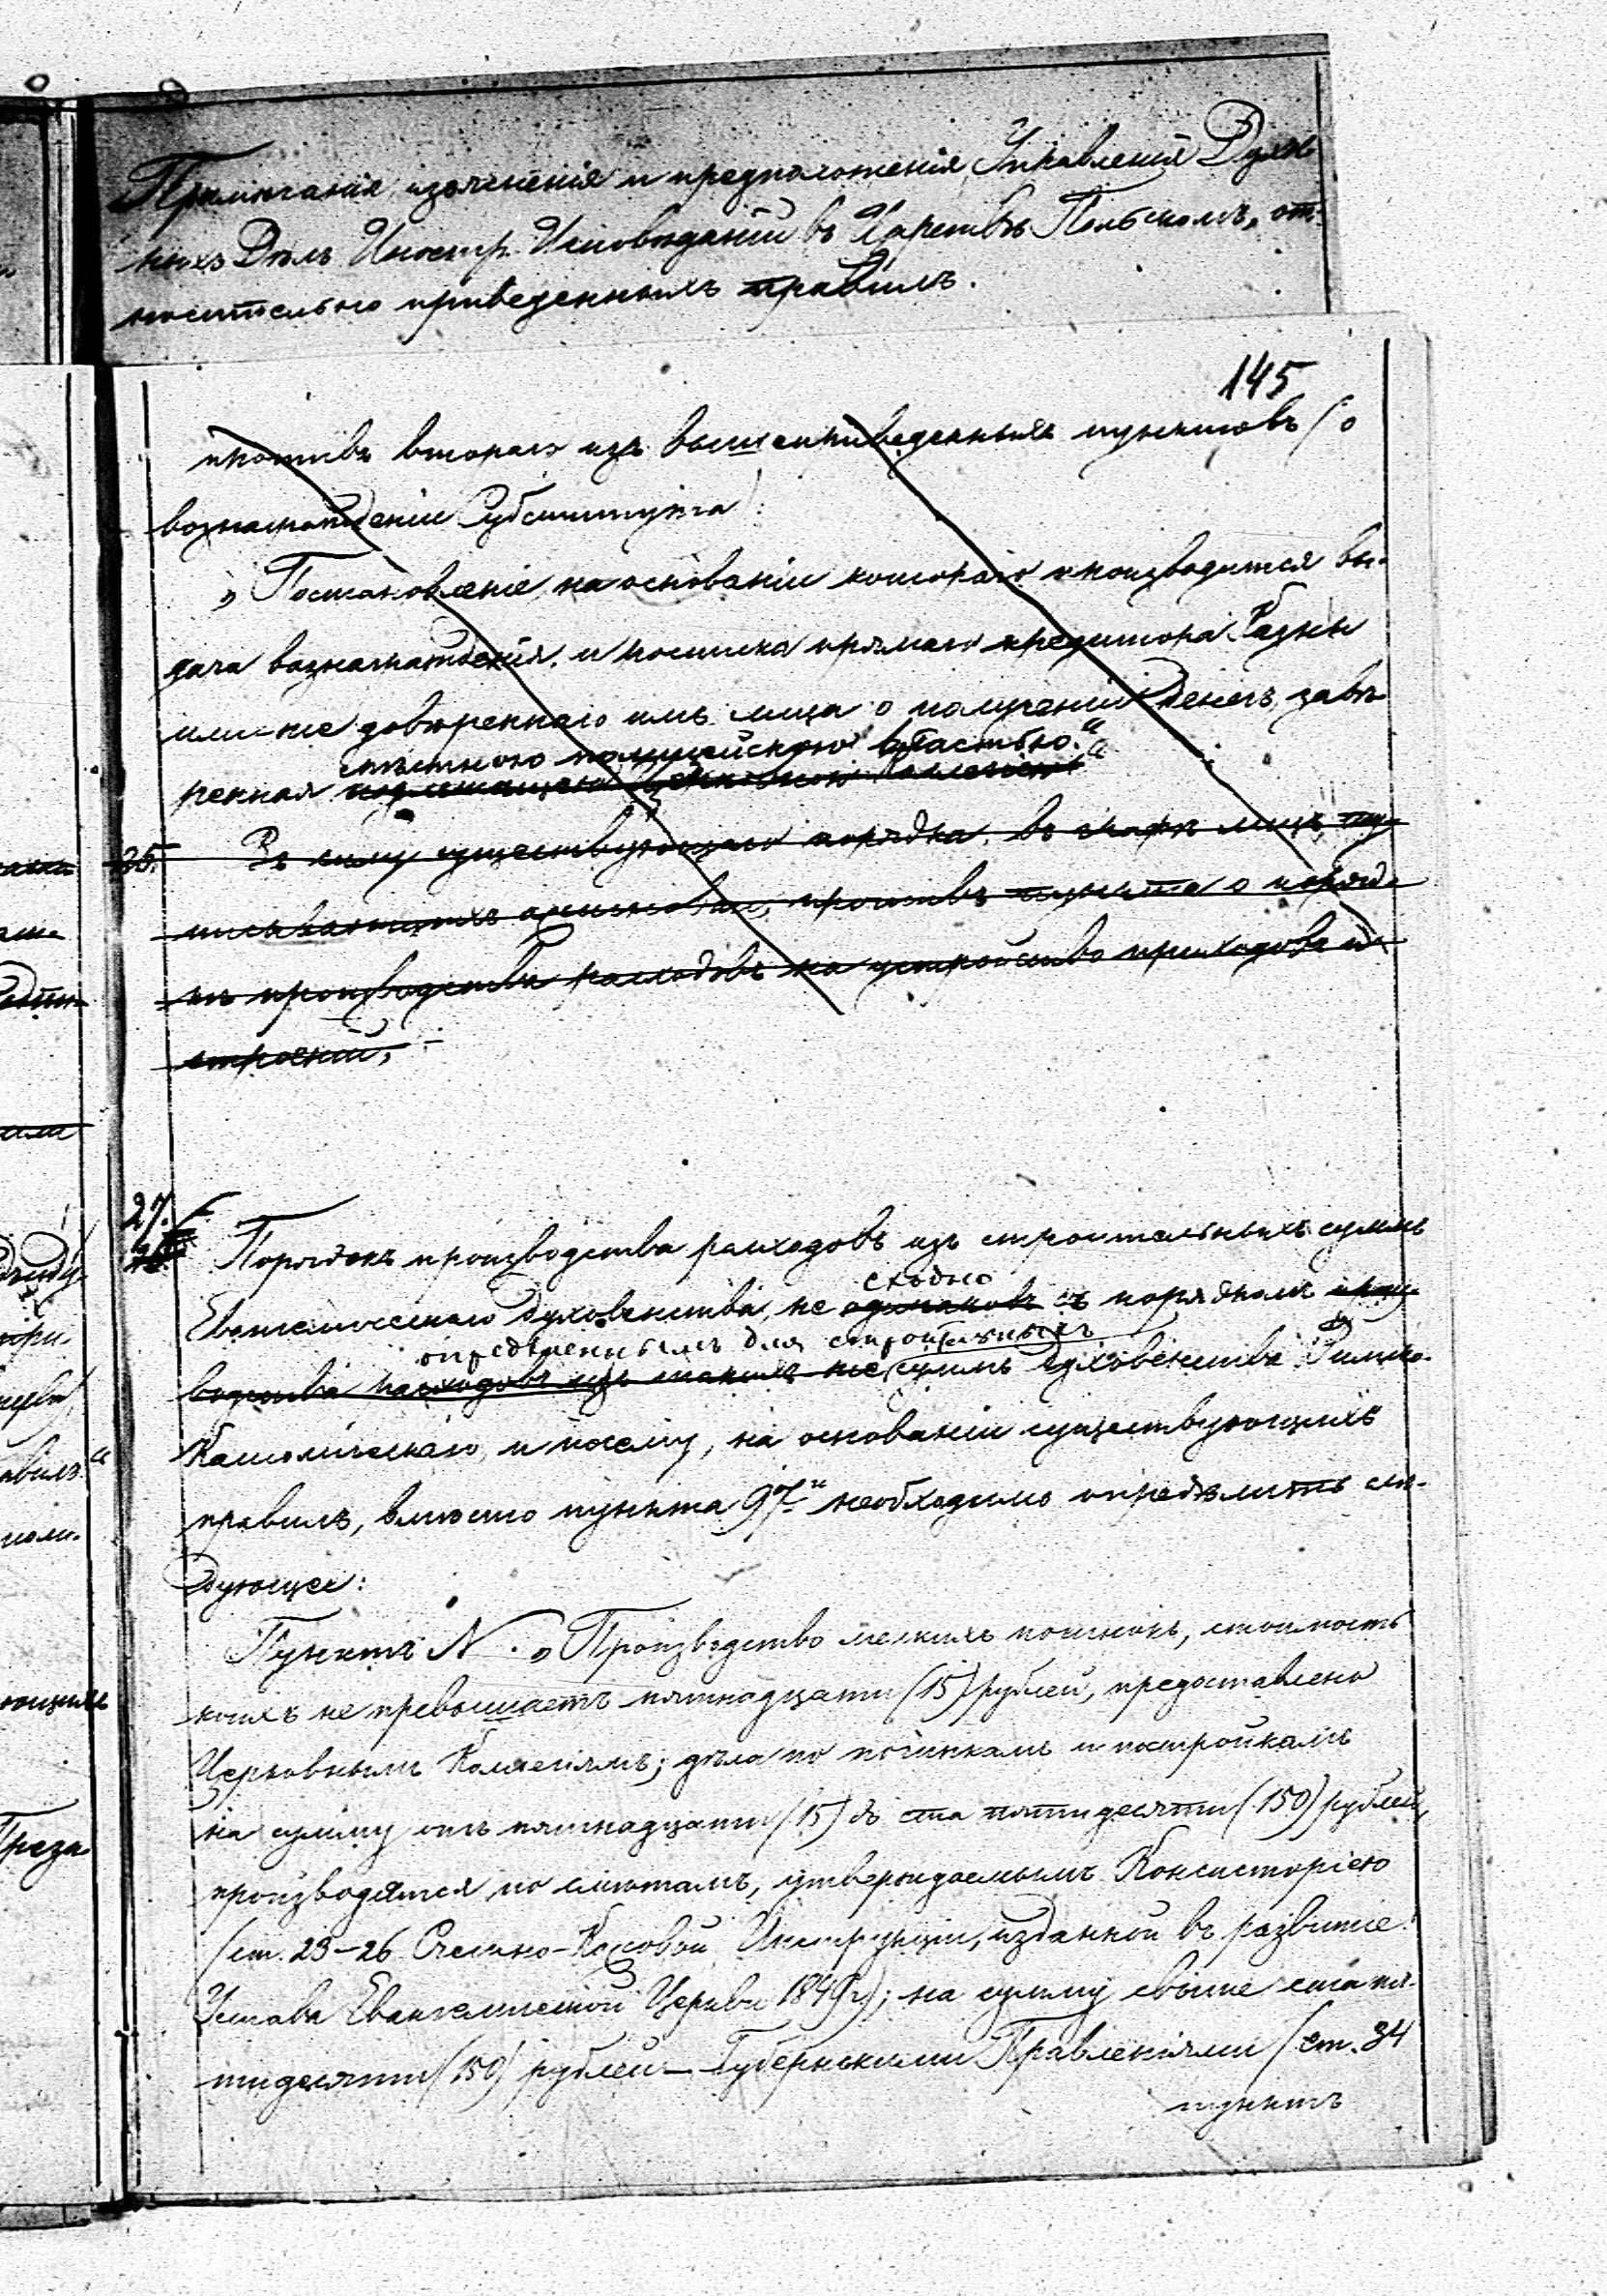 Примѣчанія, изъясненія и предположенія Управленія Духов-
ныхъ Дѣлъ Иностр. Исповѣданій въ Царствѣ Польскомъ, от-
носительно приведенныхъ правилъ.
145
противъ втораго изъ вышеприведенныхъ пунктовъ (о
вознагражденіи Субститута):
„Постановленіе, на основаніи котораго производится вы-
дача вознагражденія, и росписка прямаго кредитора Казны
или-же довѣреннаго имъ лица о полученіи денегъ, завѣ-
мѣстною полицейскою властью."
ренная подлежащею Церковною Коллегіею
25. Въ силу существующаго порядка, въ графѣ лицъ,
противъ пункта о поряд-
кѣ производства расходовъ на устройство приходовъ и
строеній,
27.
Порядокъ производства расходовъ изъ строительныхъ суммъ
сходно
Евангелическаго духовенства, не одинаковъ съ порядкомъ произ-
опредѣленнымъ для строительныхъ
водства расходовъ изъ такихъ-же суммъ духовенства Римско-
Католическаго, и посему, на основаніи существующихъ
правилъ, вмѣсто пункта 97-го необходимо опредѣлить слѣ-
дующее:
Пунктъ N. „Производство мелкихъ починокъ, стоимость
коихъ не превышаетъ пятнадцати (15) рублей, предоставлено
Церковнымъ Коллегіямъ; дѣла по починкамъ и постройкамъ
на сумму отъ пятнадцати (15) до ста пятидесяти (150) рублей,
производятся по смѣтамъ, утверждаемымъ Консисторіею
(ст. 23–26 Счетно-Кассовой Инструкціи, изданной въ развитіе
Устава Евангелической Церкви 1849 г.); на сумму свыше ста пя-
тидесяти (150) рублей – Губернскими Правленіями (ст. 34
пунктъ